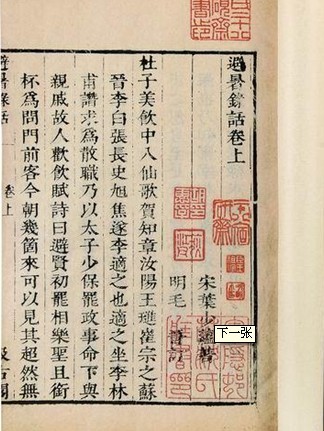 避暑錄話卷上
宋葉少蘊著
明毛晉訂
杜子美飲中八仙歌賀知章汝陽王璡崔宗之蘇
晉李白張長史旭焦遂李適之也適之坐李林
甫譖求為散職乃以太子少保罷政事命下與
親戚故人歡飲賦詩曰避賢初罷相樂聖且銜
杯為問門前客今朝幾箇來可以見其超然無
避暑錄話
卷上
汲古閣
下一张